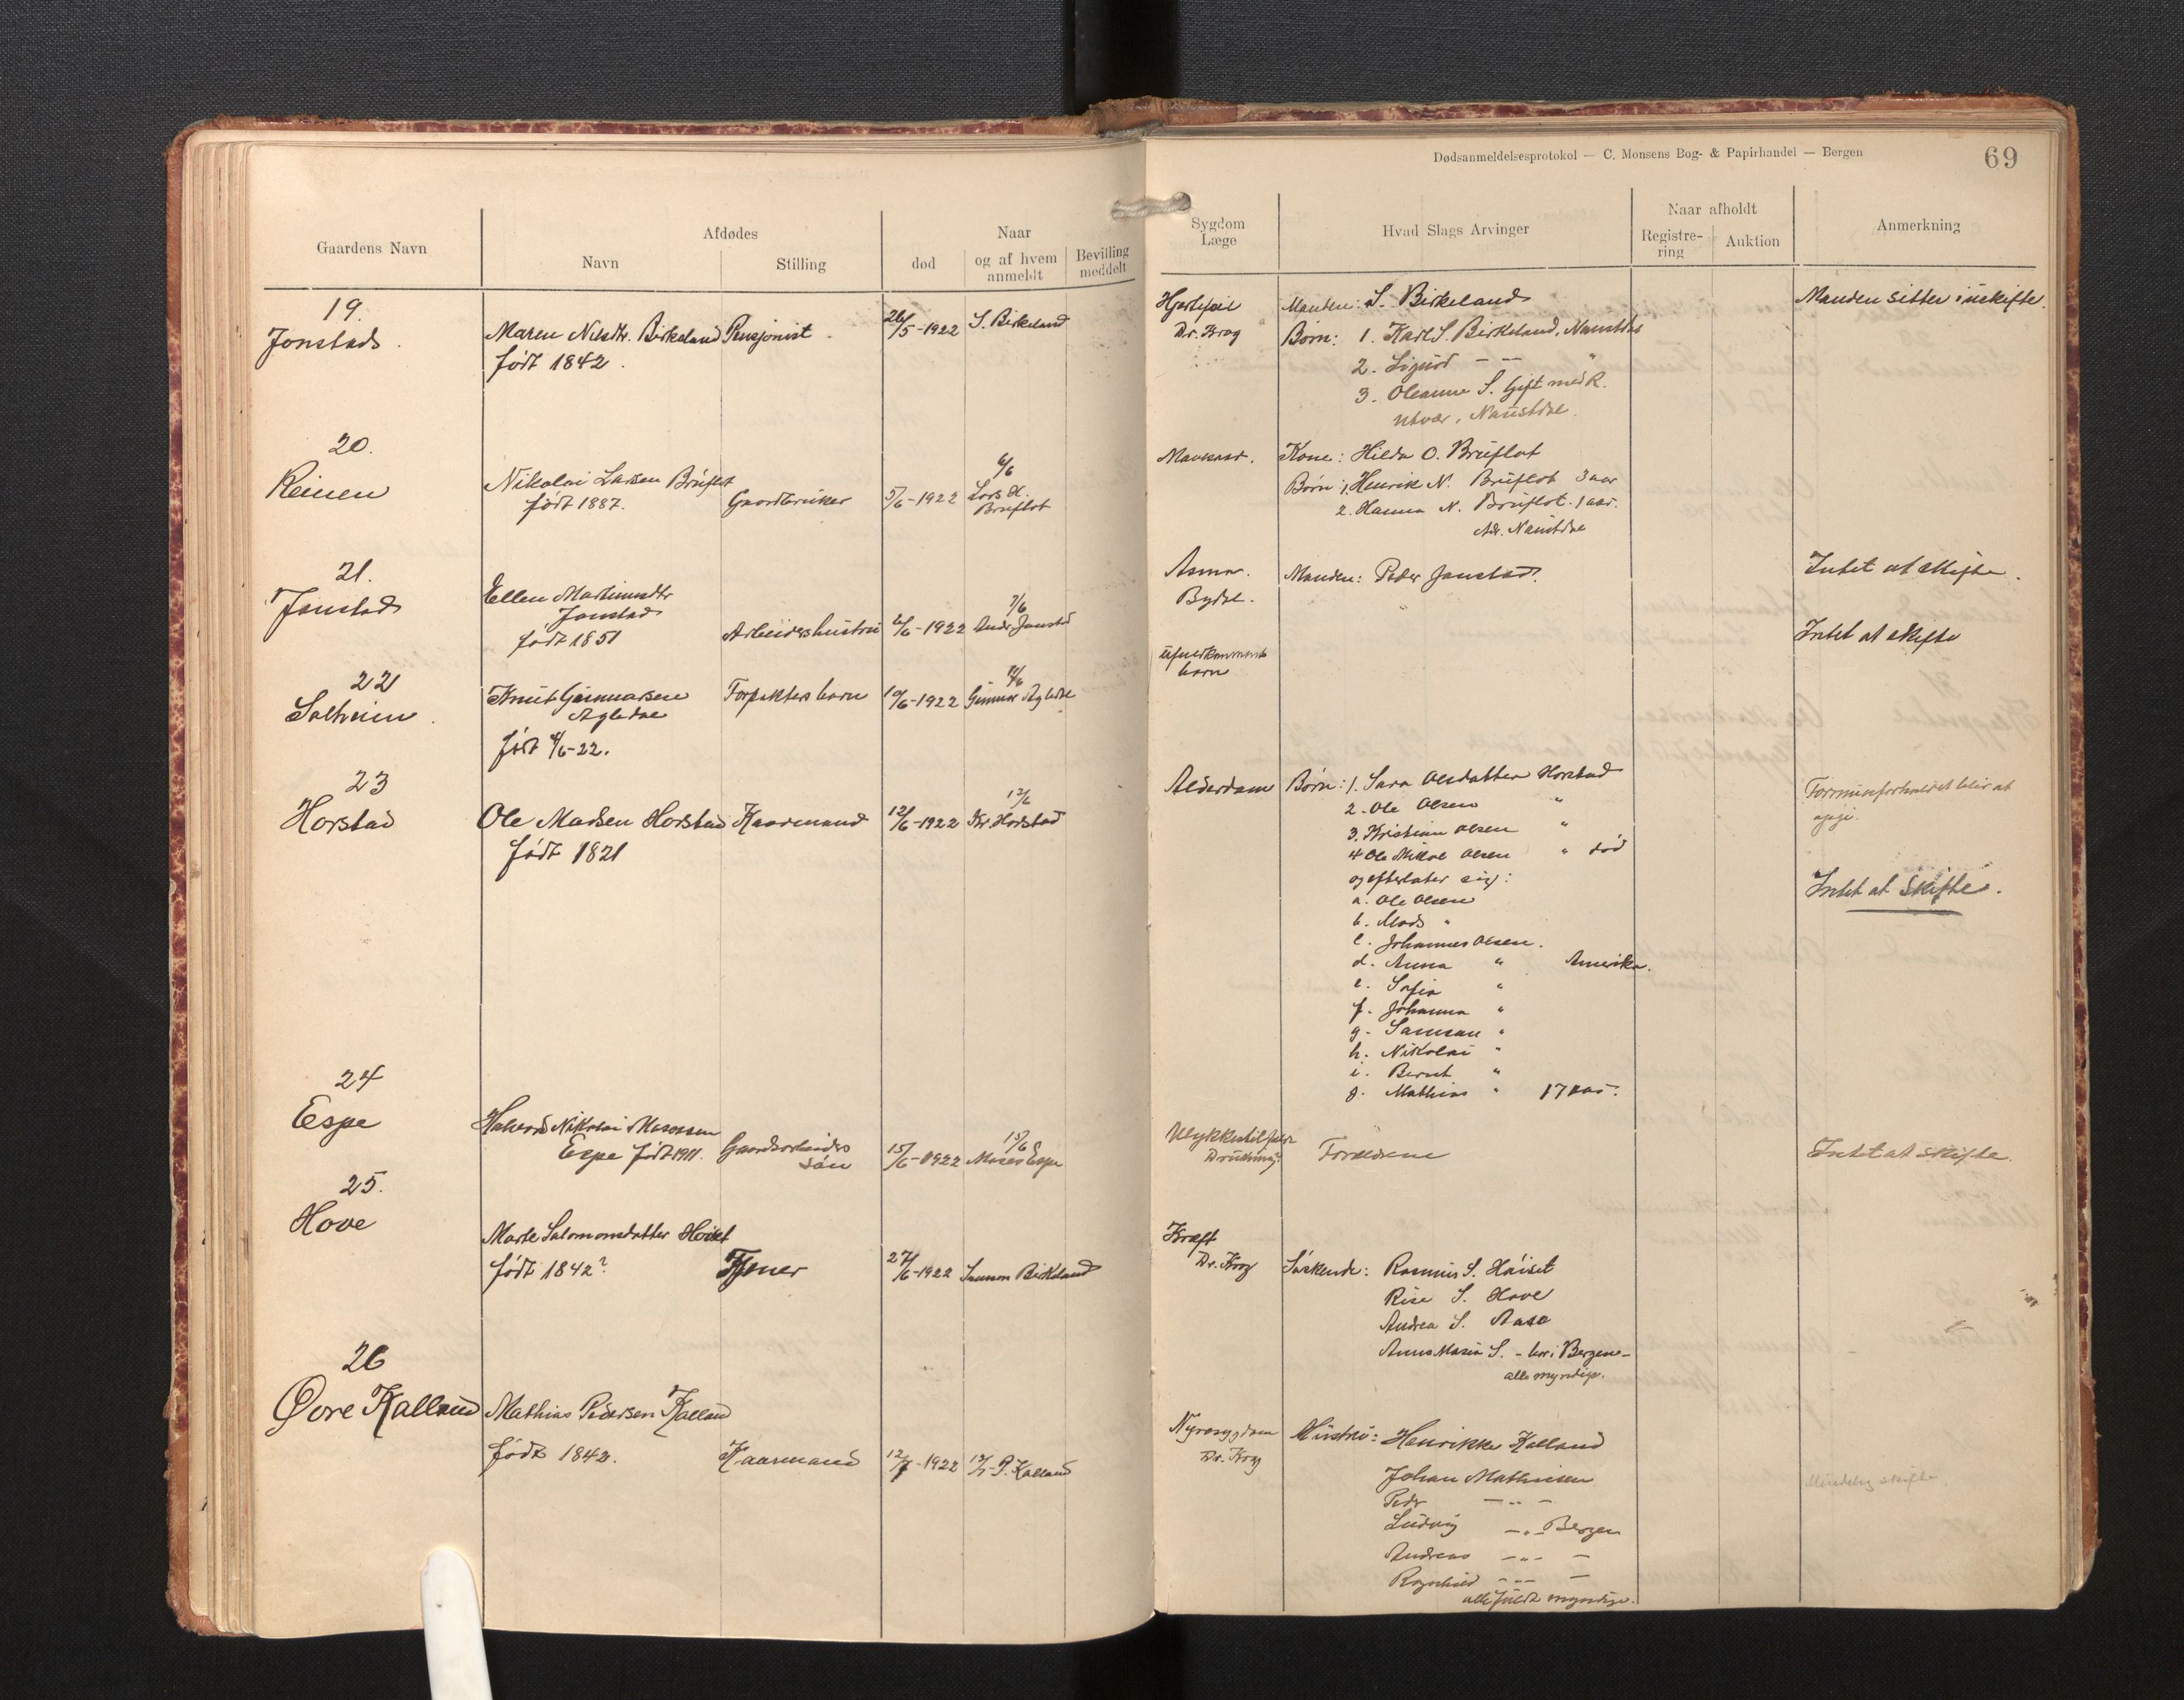 Dødsanmeldelsesprotokol — C. Monsens Bog- & Papirhandel — Bergen
69
Gaardens Navn
Afdødes
Navn
Stilling
Naar
død
og af hvem anmeldt
Bevilling meddelt
Sygdom
Læge
Hvad Slags Arvinger
Naar afholdt
Registre-
ring
Auktion
Anmerkning
19.
Jonstad.
Maren Nilsdtr. Birkeland
født 1842.
Pensjonist.
26/5-1922
S. Birkeland
Hjertefeil
Dr. Krog
Manden: S. Birkeland
Børn: 1. Karl S. Birkeland, Naustdal
2. Sigurd — — "
3. Oleanne S. Gift med R.
Utvær, Naustdal.
Manden sitter i uskifte.
20.
Reinen
Nikolai Larsen Bruflot
født 1887.
Gaardbruker
5/6-1922
6/6
Lars H.
Bruflot
Kone: Hilda O. Bruflot
Børn: 1. Henrik N. Bruflot 3 aar
2. Hanna N. Bruflot. 1 aar.
Adr. Naustdal
21.
Jonstad
Ellen Martinusdtr
Jonstad
født 1851
Arbeidershustru
6/6-1922
7/6
Jonstad
Asma.
Bydal.
Manden: Peder Jonstad.
Intet at skifte.
22
Solheim.
Knut Gunnarsen
Agledal
født 4/6-22.
Forpakters barn
10/6-1922
Gunnar Agledal
ufuldkomment
barn
Intet at skifte
23
Horstad
Ole Madsen Horstad
født 1821
Kaarmand
12/6-1922
13/6
Kr. Horstad
Alderdom
Børn: 1. Sara Olsdatter Horstad
2. Ole Olsen "
3. Kristian Olsen "
4 Ole Nikol Olsen " død
og efterlater sig:
a. Ole Olsen
b. Mads "
c. Johannes Olsen.
d. Anna " Amerika.
e. Sofia "
f. Johanna "
g. Samson "
h. Nikolai "
i. Bernt "
j. Mathias " 17 aar.
blir at
opgi.
Intet at skifte.
24
Espe
Halvard Nikolai Mosessen
Espe født 1911.
Gaardarbeiders
søn
15/6-1922
15/6
Moses Espe
Ulykkestilfælde
Drukning.
Forældrene
Intet at skifte.
25.
Hove
Marte Salomonsdatter Høiset
født 1842?
Tjener
27/6-1922
Samson Birkeland
Kræft
Dr. Krog
Søskende: Rasmus S. Høiset
Rise S. Hove
Andrea S. Aase
Anna Maria S. - bor i Bergen -
alle myndige.
26
Øvre Kalland
Mathias Pedersen Kalland
født 1842.
Kaarmand
12/7-1922
P. Kalland
Nyresygdom
Dr. Krog
Hustru: Henrikke Kalland
Johan Mathiesen
Peder — " —
Ludvig — " — Bergen
Andreas — " — —
Ragnhild — " — —
alle fuldt myndige.
Mindelig skifte.